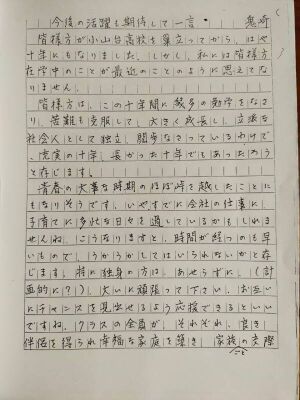 今後の活躍を期待して一言 鬼崎
皆様方が小山台高校を巣立ってから、はや
十年にもなりました。しかし、私には皆様方
在学中のことが最近のことのように思えてな
りません。
皆様方は、この十年間に数多の勉学をなさ
り、苦難も克服して、大きく成長し、立派な
社会人として独立、闊歩なさっているわけで、
の十年、長かった十年でもあったろう
と存じます。
青春の大事な時期のほぼ峠を越したことに
もなりそうです。いやすでに会社の仕事に、
子育てに多忙な日々を過しているかもしれま
せんね。こうなりますと、時間が経つのも早
いもので、うかうかしてはいられないかと存
じます。特に独身の方は、あせらずに、(計
画的に?)、大いに頑張って下さい。お互い
にチャンスを見出せるよう応援できるといい
ですね。クラスの全員が、それぞれ、良き
伴侶を得られ幸福な家庭を築き、家族の交際